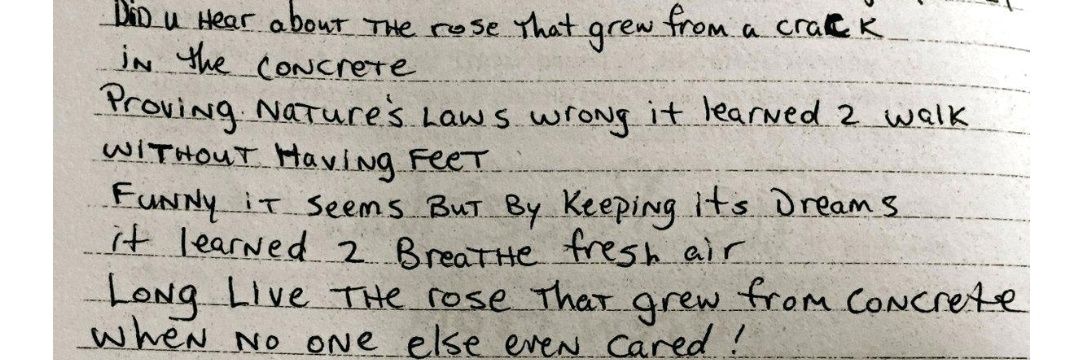 DiD u Hear about THe rose That grew from a crack
iN the CONCreTe
Proving NaTure's Laws wrong it learNed 2 walk
WITHouT HavINg FeeT
FuNNy iT Seems BuT By KeepiNg iTs Dreams
it learNed 2 BreaTHe fresh air
LoNg Live THe rose THaT grew from CoNCrete
wheN No oNe else eveN Cared!